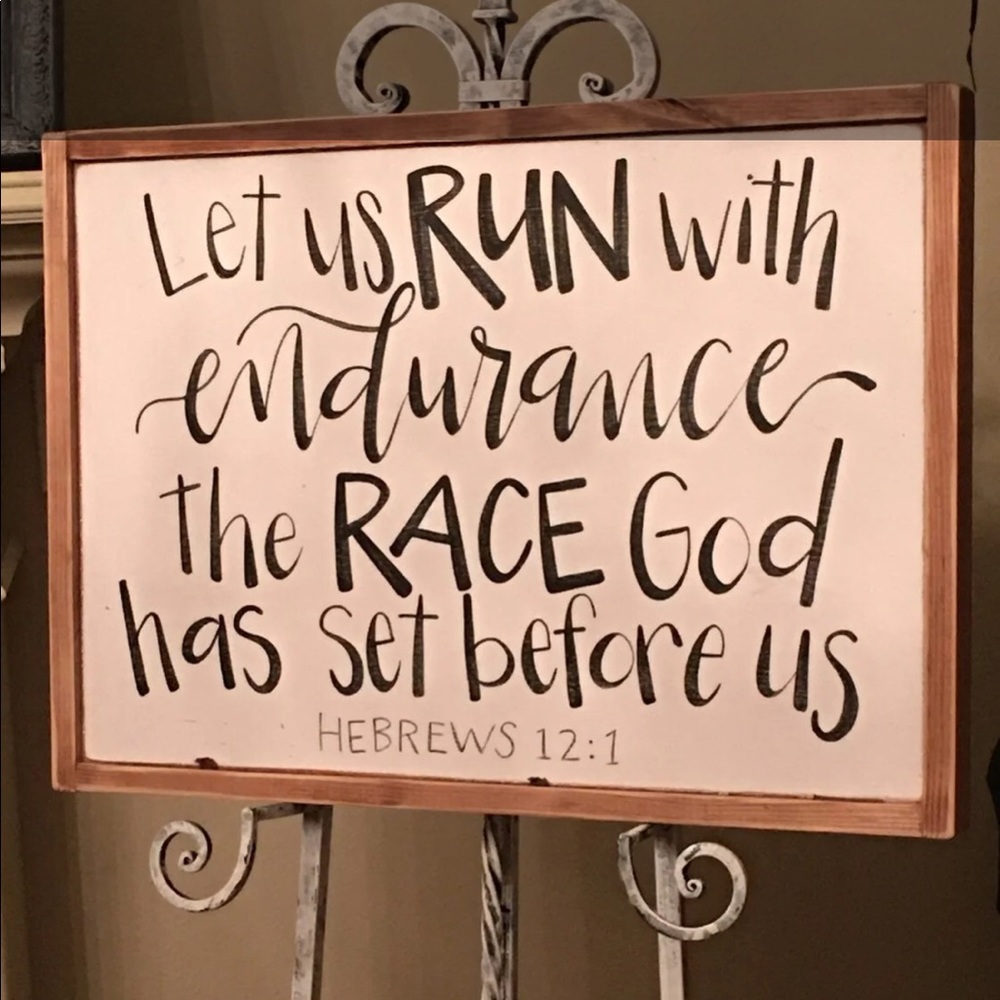 Let us RUN with
endurance
the RACE God
has set before us
HEBREWS 12:1